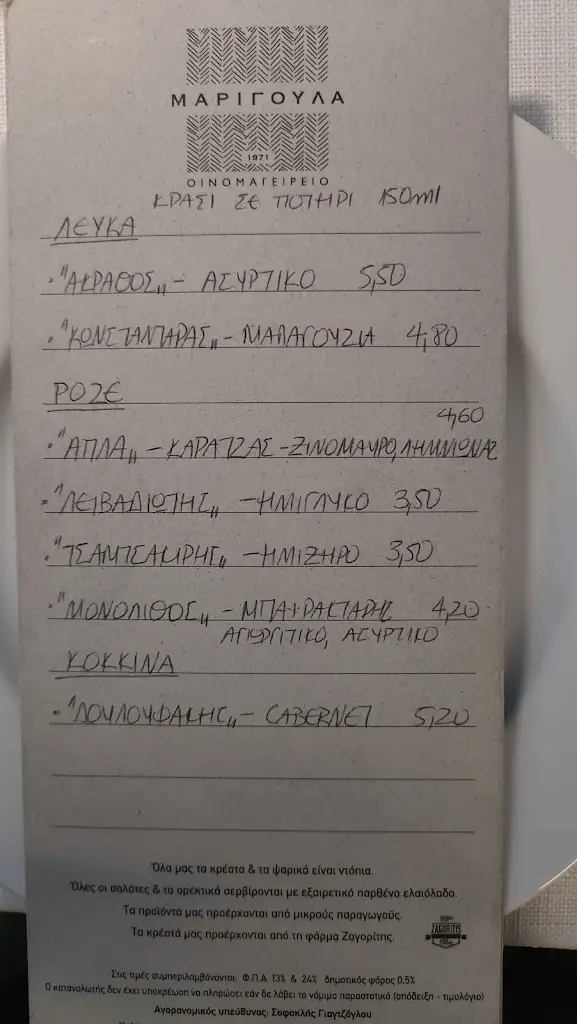 ΜΑΡΙΓΟΥΛΑ
1971
ΟΙΝΟΜΑΓΕΙΡΕΙΟ
ΚΡΑΣΙ ΣΕ ΠΟΤΗΡΙ 150ml
ΛΕΥΚΑ
• "ΑΚΡΑΘΟΣ" - ΑΣΥΡΤΙΚΟ 5,50
• "ΚΩΝΣΤΑΝΤΑΡΑΣ" - ΜΑΛΑΓΟΥΖΙΑ 4,80
ΡΟΖΕ
4,60
• "ΑΠΛΑ" - ΚΑΡΑΤΖΑΣ - ΞΙΝΟΜΑΥΡΟ, ΛΗΜΝΙΩΝΑΣ
• "ΛΕΙΒΑΔΙΩΤΗΣ" - ΗΜΙΓΛΥΚΟ 3,50
• "ΤΣΑΜΤΣΑΚΙΡΗΣ" - ΗΜΙΞΗΡΟ 3,50
• "ΜΟΝΟΛΙΘΟΣ" - ΜΠΑΙΡΑΚΤΑΡΗΣ 4,20
ΑΓΙΩΡΓΙΤΙΚΟ, ΑΣΥΡΤΙΚΟ
ΚΟΚΚΙΝΑ
• "ΛΟΥΛΟΥΦΑΚΗΣ" - CABERNET 5,20
Όλα μας τα κρέατα & τα ψαρικά είναι ντόπια.
Όλες οι σαλάτες & τα ορεκτικά σερβίρονται με εξαιρετικό παρθένο ελαιόλαδο.
Τα προϊόντα μας προέρχονται από μικρούς παραγωγούς.
Τα κρέατά μας προέρχονται από τη φάρμα Ζαγορίτης.
ZAGORITIS
Στις τιμές συμπεριλαμβάνονται: Φ.Π.Α. 13% & 24% δημοτικός φόρος 0,5%
Ο καταναλωτής δεν έχει υποχρέωση να πληρώσει εάν δε λάβει το νόμιμο παραστατικό (απόδειξη - τιμολόγιο)
Αγορανομικός υπεύθυνος: Σοφοκλής Γιαγτζόγλου